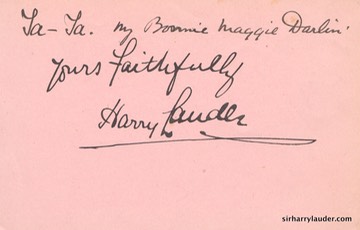 Ta-Ta. My Bonnie Maggie Darlin'
Yours Faithfully
Harry Lauder
sirharrylauder.com